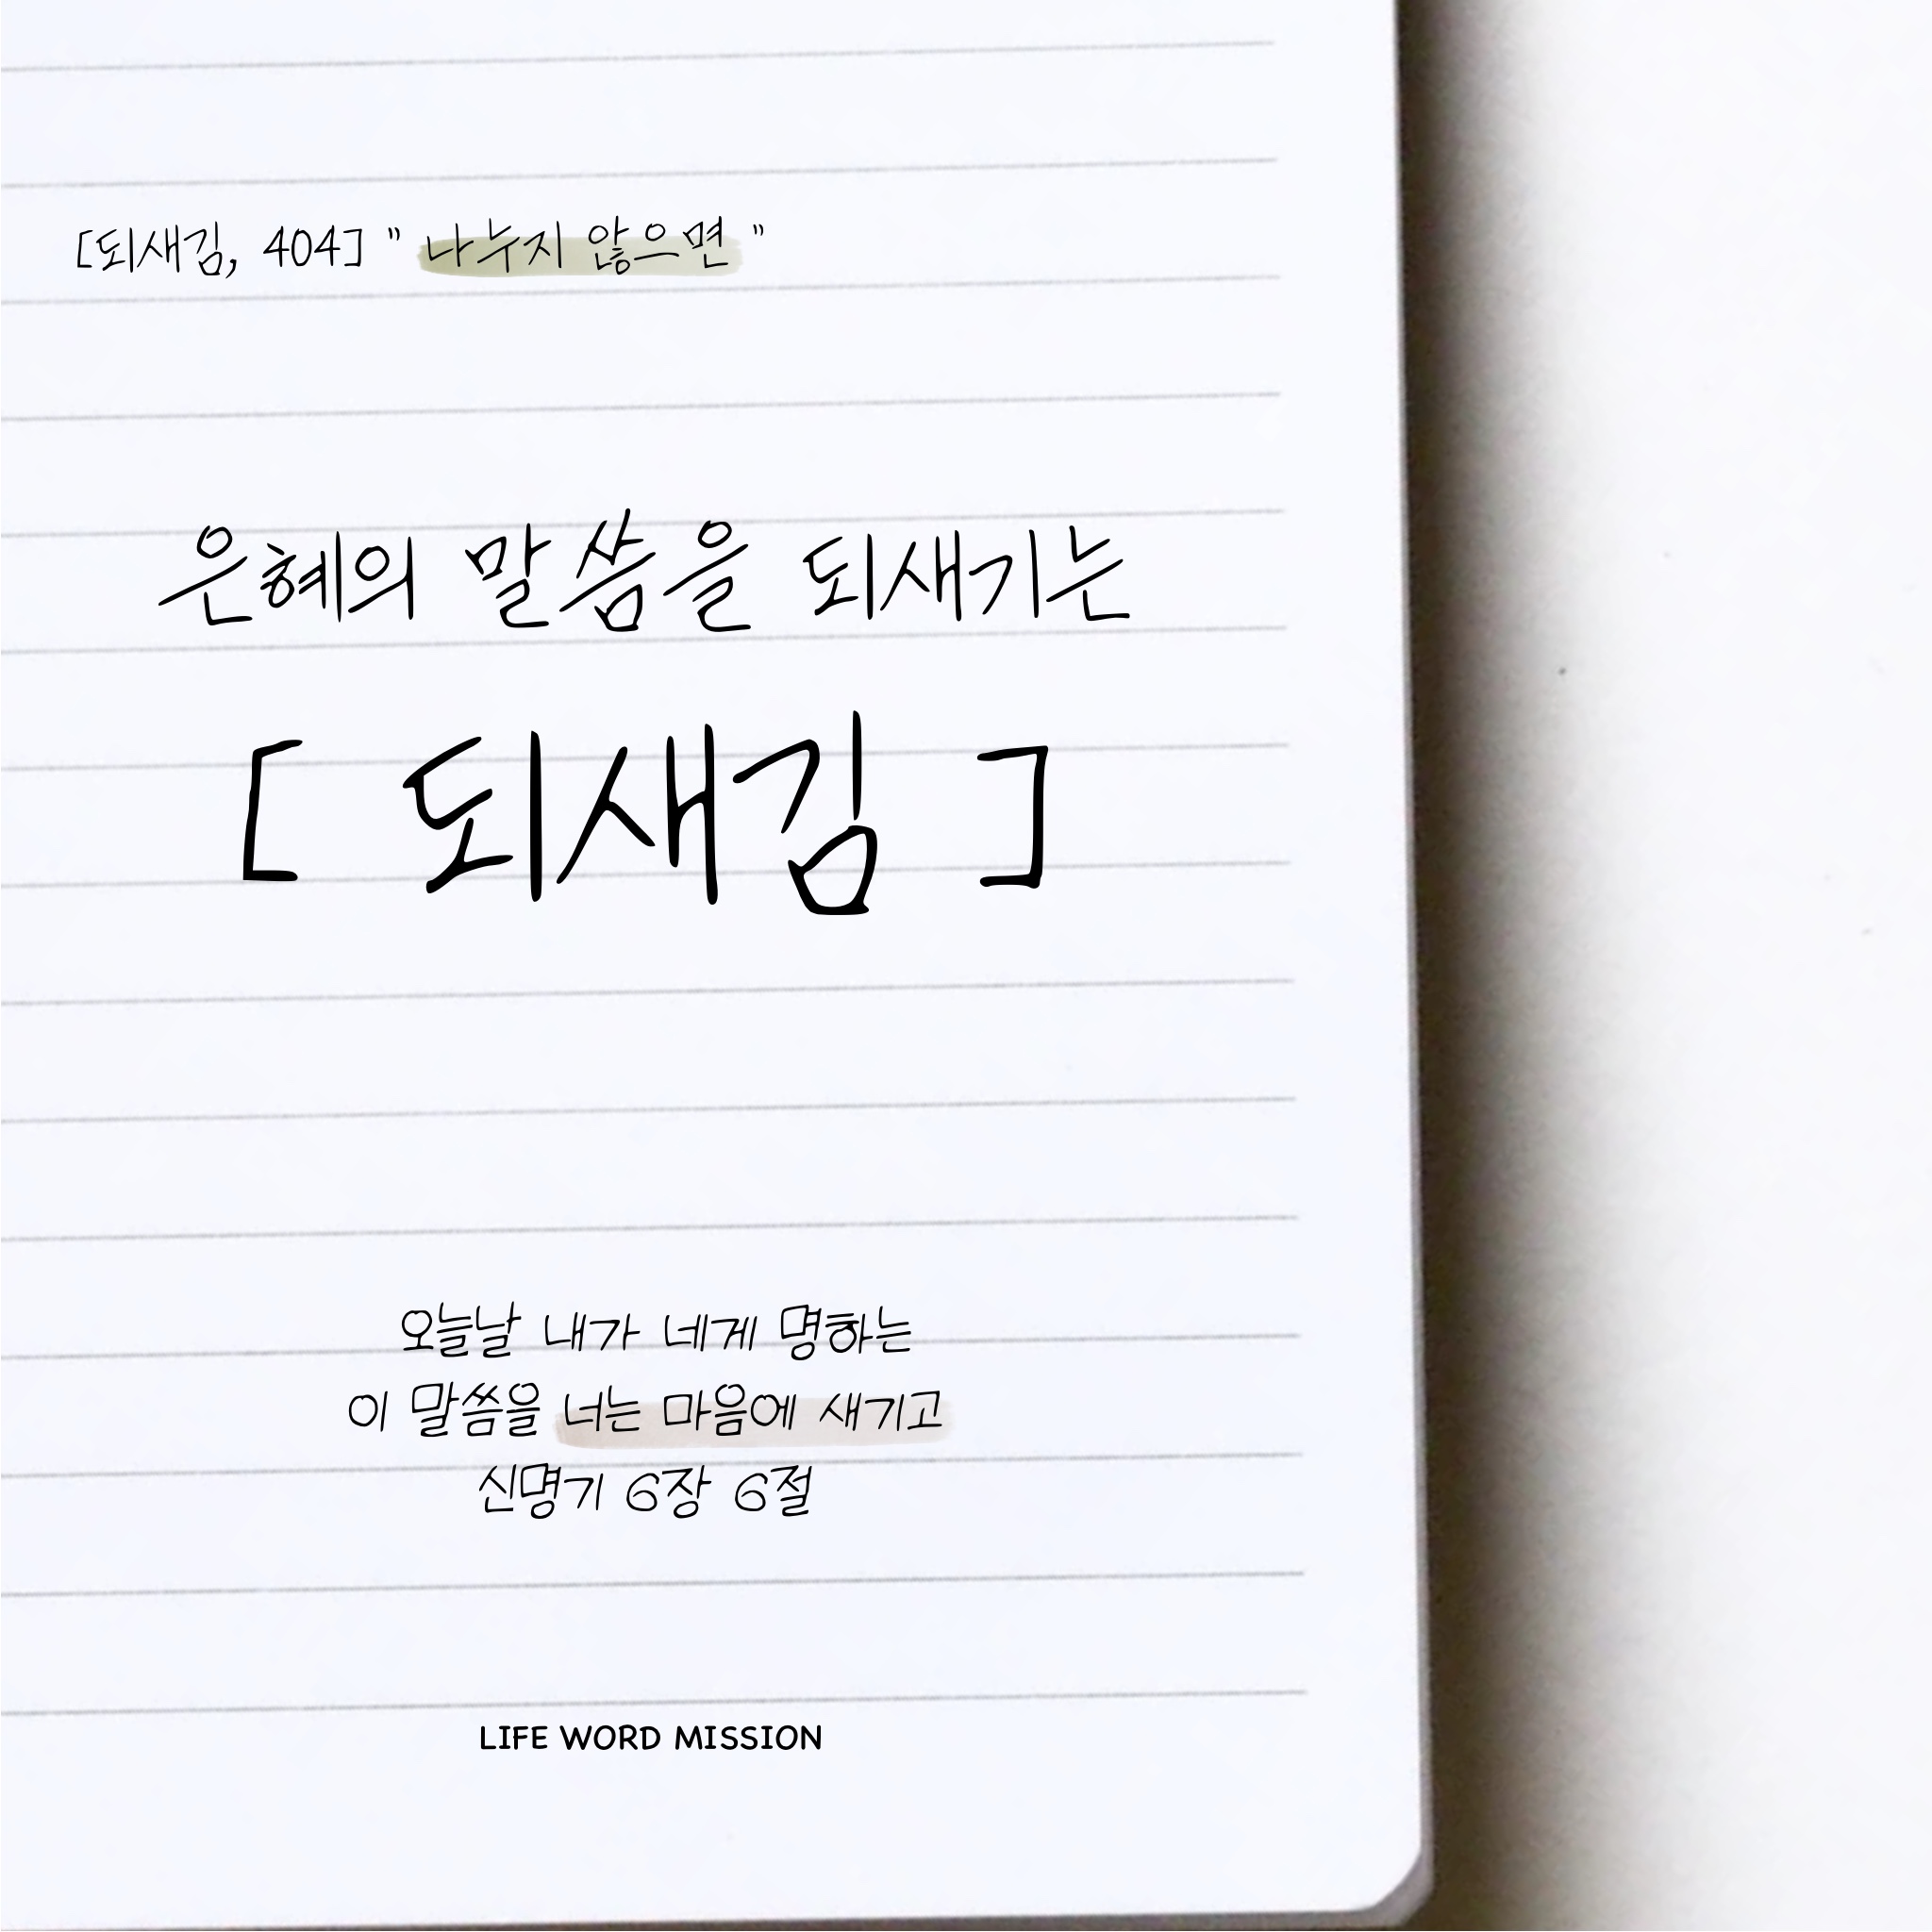 [되새김, 404] " 나누지 않으면 "
은혜의 말씀을 되새기는
[ 되새김 ]
오늘날 내가 네게 명하는
이 말씀을 너는 마음에 새기고
신명기 6장 6절
LIFE WORD MISSION